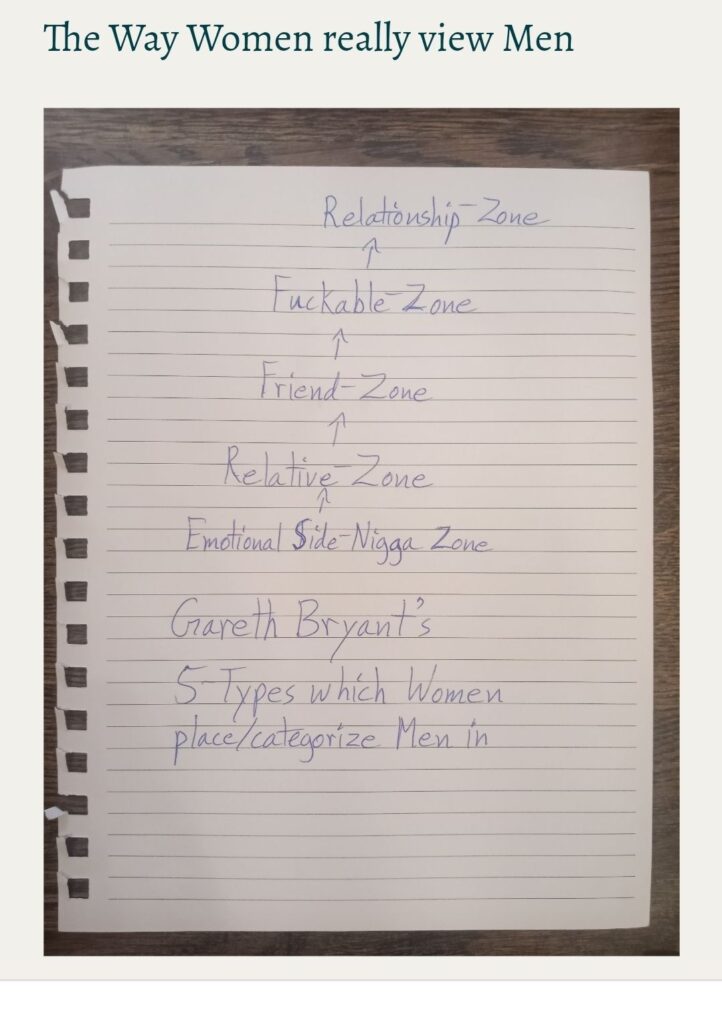 The Way Women really view Men
Relationship-Zone
↑
Fuckable-Zone
↑
Friend-Zone
↑
Relative-Zone
↑
Emotional Side-Nigga Zone
Gareth Bryant's
5-Types which Women
place/categorize Men in